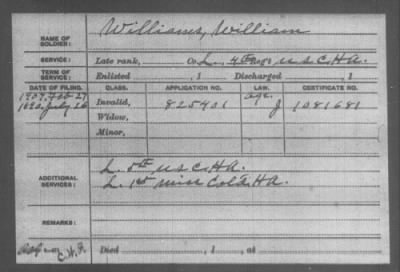 NAME OF SOLDIER: Williams, William
SERVICE: Late rank, Co. L, 4th Reg't U.S.C.H.A.
TERM OF SERVICE: Enlisted , 1 Discharged , 1
DATE OF FILING. CLASS. APPLICATION NO. LAW. CERTIFICATE NO.
1907, Feb 27 age
1890, July 26 Invalid, 825401 J 1081681
Widow,
Minor,
ADDITIONAL SERVICES: L. 5th U.S.C.H.A.
L. 1st Miss Col'd H.A.
REMARKS:
C.H.A. Died , 1 , at